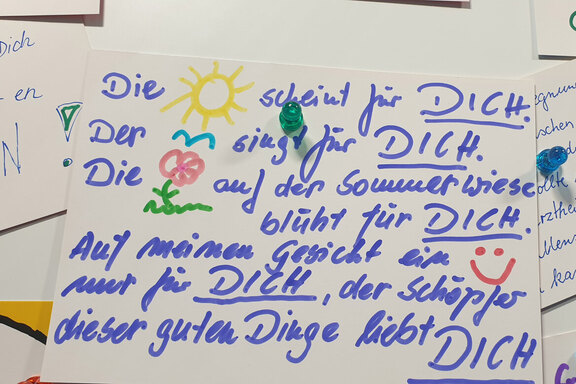 Die scheint für DICH.
Der singt für DICH.
Die auf der Sommerwiese
blüht für DICH.
Auf meinem Gesicht ein
nur für DICH, der Schöpfer
dieser guten Dinge liebt DICH
Dich
en
N